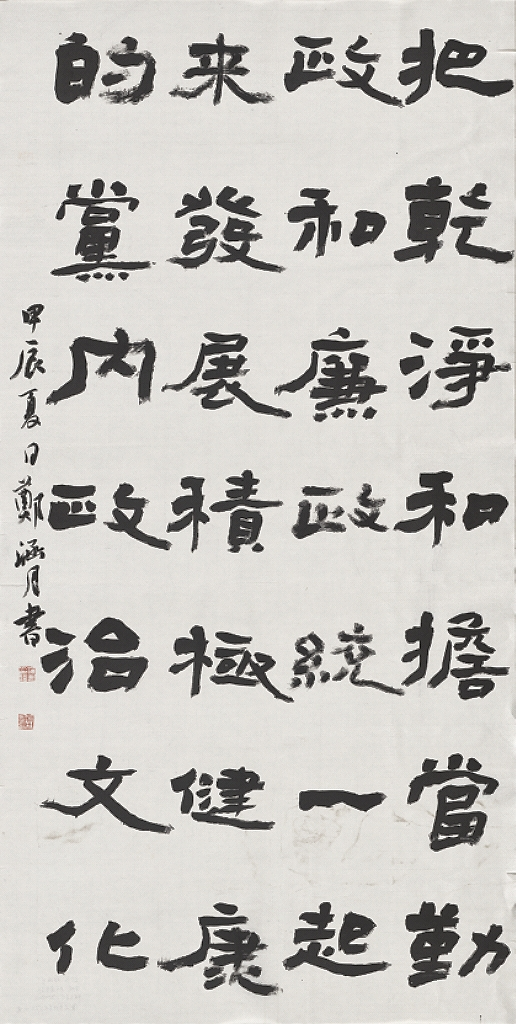 把乾淨和擔當勤
政和廉政統一起
来發展積極健康
的黨内政治文化
甲辰夏日鄭涵月書